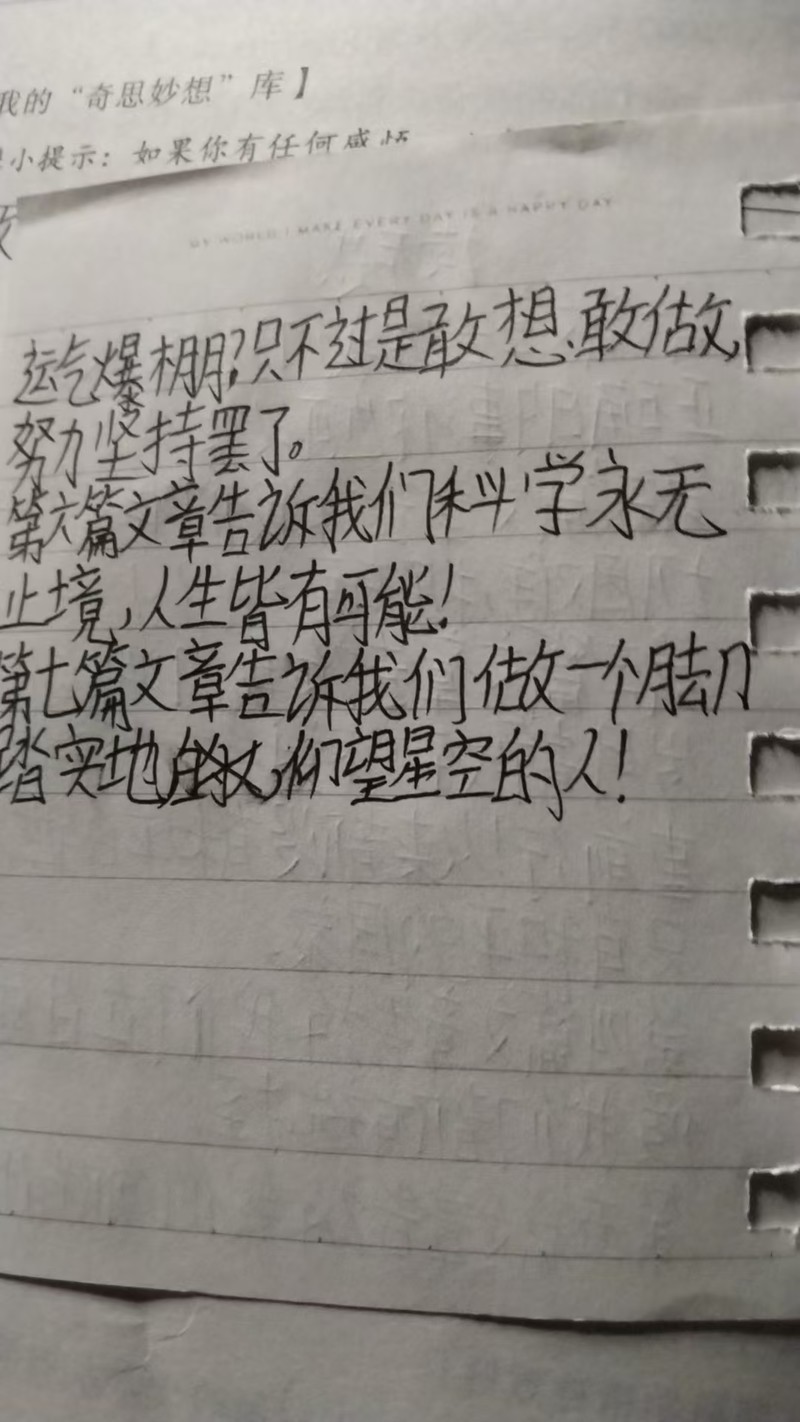 我的“奇思妙想”库】
小提示：如果你有任何感悟
MY WORLD I MAKE EVERY DAY IS A HAPPY DAY
运气爆棚？只不过是敢想、敢做，
努力坚持罢了。
第六篇文章告诉我们科学永无
止境，人生皆有可能！
第七篇文章告诉我们做一个脚
踏实地，仰望星空的人！